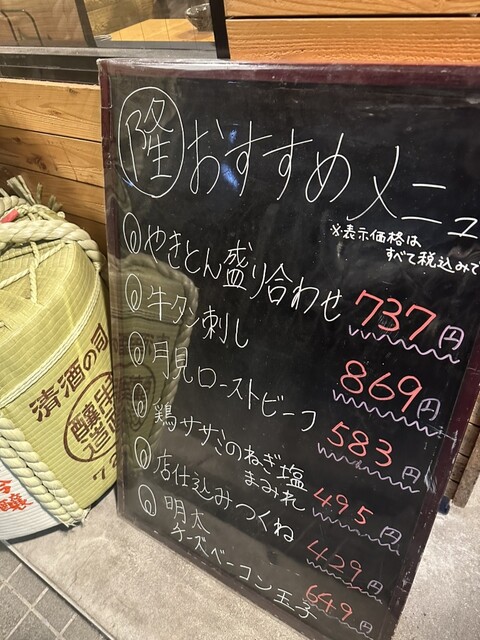 隆 おすすめメニュ
※表示価格は
すべて税込みで
やきとん盛り合わせ 737円
牛タン刺し 869円
月見ローストビーフ 583円
鶏ササミのねぎ塩
まみれ 495円
店仕込みつくね 429円
明太
チーズベーコン玉子 649円
清酒の司